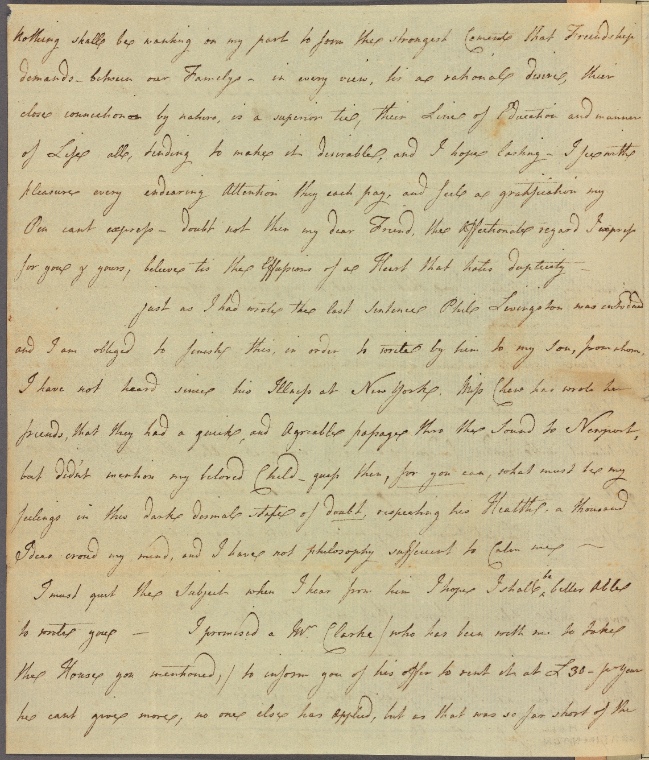 Nothing shall be wanting on my part to form the strongest Cement that Friendship
demands - between our Familys - in every view, tis a rational desire, their
close connection by nature, is a superior tie, their Line of Education and manner
of Life all, tending to make it desirable, and I hope lasting - I see with
pleasure every endearing Attention they each pay, and feel a gratification my
Pen cant express - doubt not then my dear Friend, the Affectionate regard I express
for you & yours, believe tis the Effusions of a Heart that hates duplicity -
just as I had wrote the last Sentence Phil Livingston was
and I am obliged to finish this, in order to write by him to my Son, from whom
I have not heard since his Illness at New York. Miss Chew has wrote her
friends, that they had a quick, and Agreable passage thro the Sound to Newport,
but didn't mention my beloved Child - guess then, for you can, what must be my
feelings in this dark dismal state of doubt, respecting his Health. a thousand
Ideas croud my mind, and I have not philosophy sufficient to Calm me -
I must quit the Subject when I hear from him I hope I shall be better Able
to write you - I promised a Mr. Clarke / who has been with me to take
the House you mentioned, / to inform you of his offer to rent it at £30 - pr Year
he cant give more, no one else has Applied, but as that was so far short of the